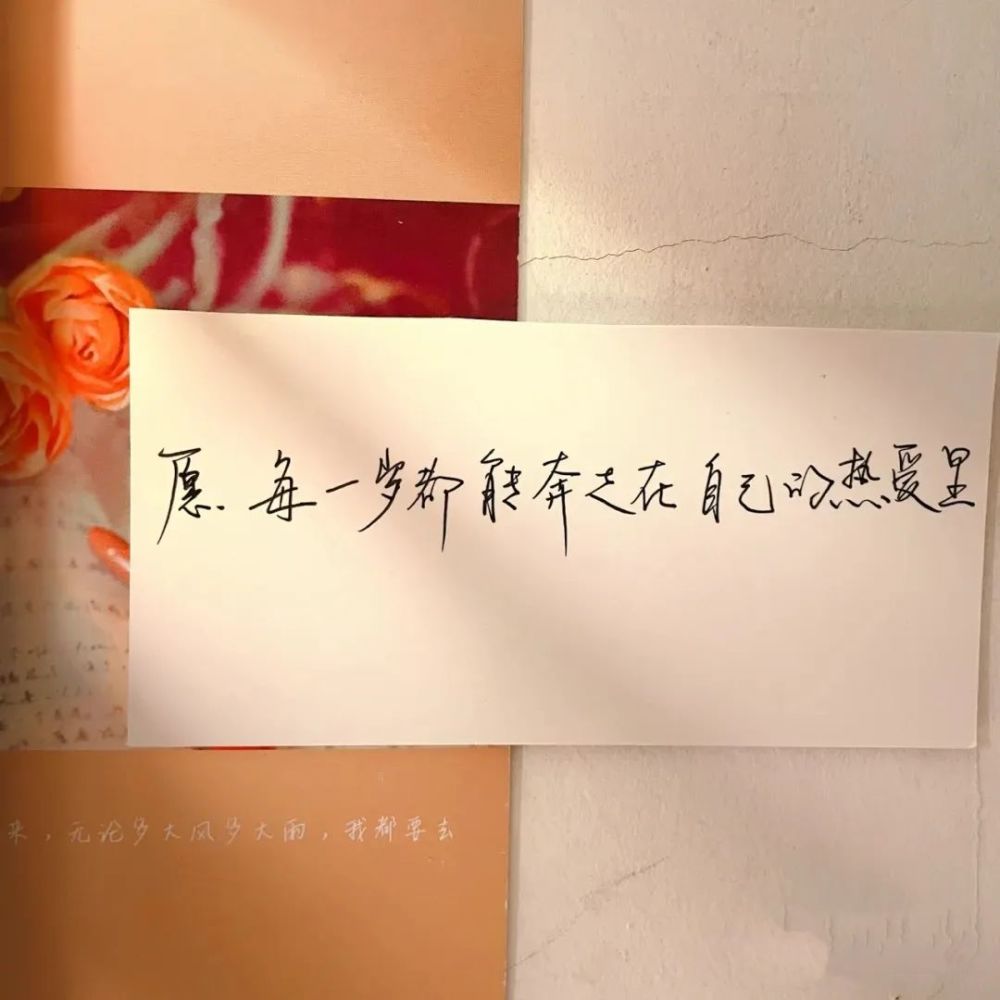 愿每一岁都能奔走在自己的热爱里
来，无论多大风多大雨，我都要去